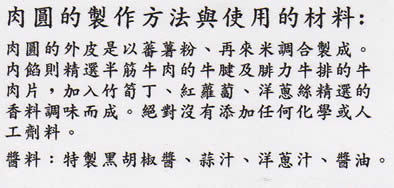 肉圓的製作方法與使用的材料:
肉圓的外皮是以蕃薯粉、再來米調合製成。
內餡則精選半筋牛肉的牛腱及腓力牛排的牛
肉片，加入竹筍丁、紅蘿蔔、洋蔥絲精選的
香料調味而成。絕對沒有添加任何化學或人
工劑料。
醬料：特製黑胡椒醬、蒜汁、洋蔥汁、醬油。